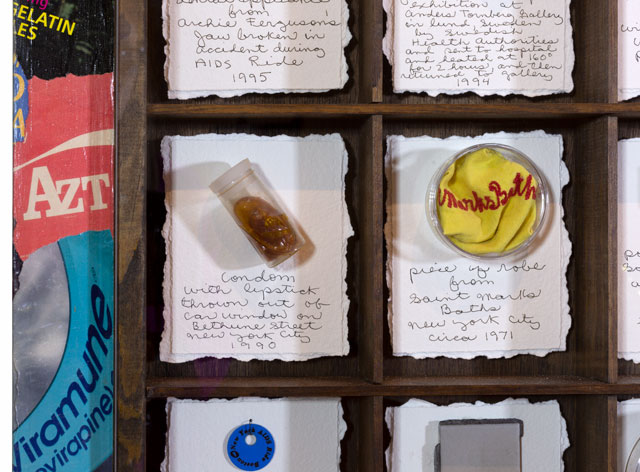 GELATIN
LES
AZT
Viramune
(nevirapine)
dental appliance
from
Archie Ferguson's
Jaw broken in
accident during
AIDS Ride
1995
exhibition at
Anders Tornberg Gallery
in Lund, Sweden
by Swedish
Health Authorities
and sent to hospital
and heated at 160°
for 2 hours and then
returned to gallery
1994
Condom
with lipstick
thrown out of
car window on
Bethune Street
New York City
1990
Marks Bath
piece of robe
from
Saint Marks
Baths
New York City
circa 1971
New York AIDS Ride
Boston